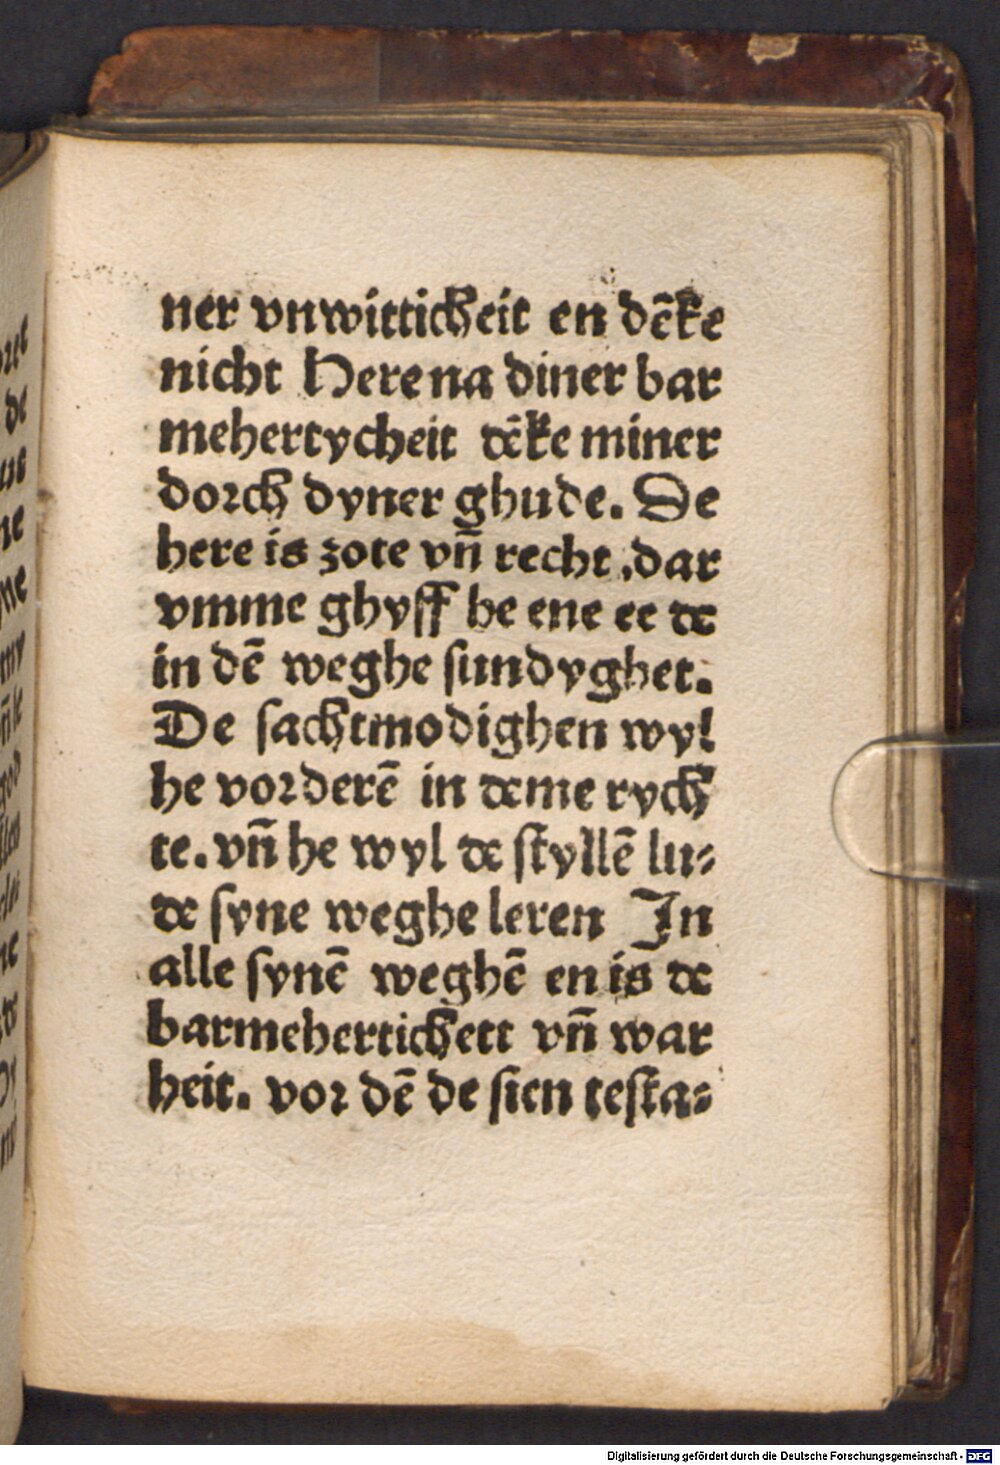 ner vnwitticheit en dēke
nicht Here na diner bar
mehertycheit dēke miner
dorch dyner ghude. De
here is zote vn̄ recht, dar
vmme ghyff he ene ee de
in dē weghe sundyghet.
De sachtmodighen wyl
he vorderē in deme rych
te. vn̄ he wyl de styllē lu-
de syne weghe leren In
alle synē weghē en is de
barmehertichett vn̄ war
heit. vor dē de sien testa-
Digitalisierung gefördert durch die Deutsche Forschungsgemeinschaft - DFG